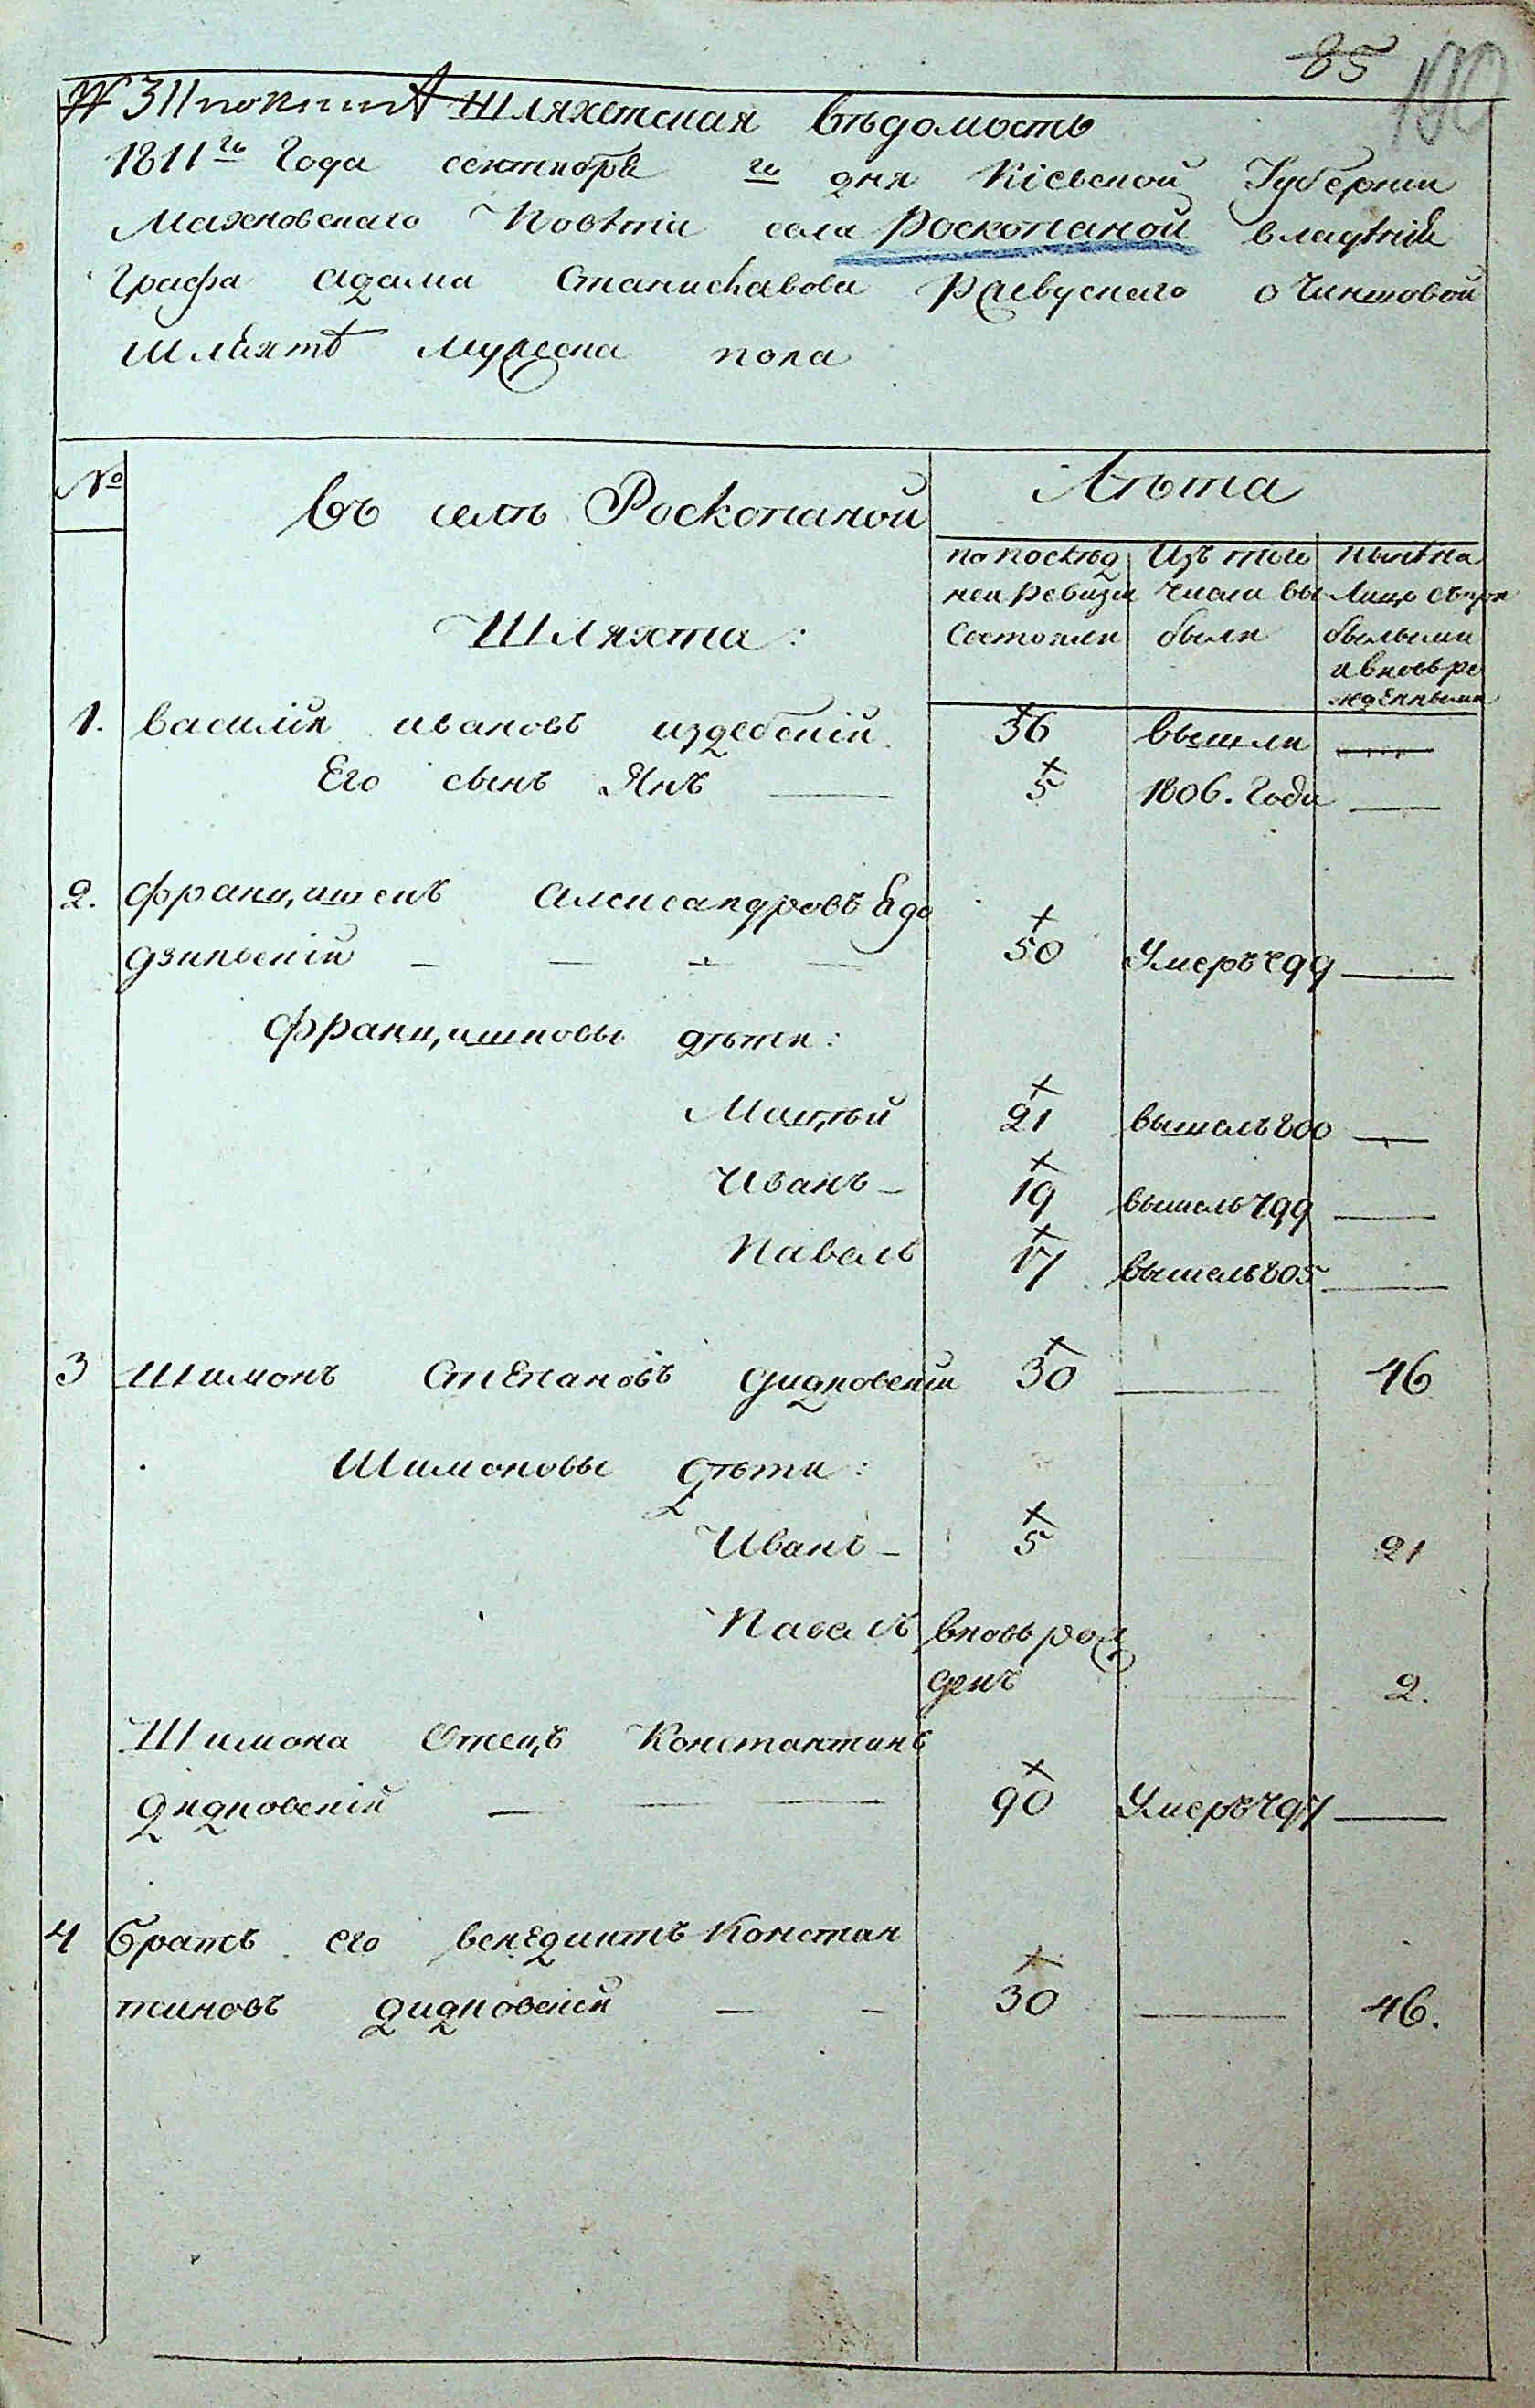 85
190
№ 311 Шляхетская Ведомость
1811го Года сентября го дня Кіевской Губернии
Махновскаго Повѣта села Роскопаной владѣнія
Графа Адама Станиславова Ржевускаго о Чиншовой
шляхтѣ мужеска пола
№
Лѣта
Въ селѣ Роскопаной
по послѣд Изъ того нынѣ на
ней Ревизіи числа вы Лицо съ при
состояли были былыми
и вновь ро
жденными
Шляхта:
1. Василій Ивановъ Издебскій 36 вышли —
Его сынъ Янъ — 5 1806. Года —
2. Францишекъ Александровъ
дзинскій — — — — 50 Умеръ 799 —
Францишковы дѣти:
Мацѣй 21 вышелъ 800 —
Иванъ — 19 вышелъ 799 —
Павелъ 17 вышелъ 805 —
3 Шимонъ Степановъ Дидковскій 30 — 46
Шимоновы дѣти:
Иванъ — 5 — 21
Павелъ вновь рож
денъ — 2.
Шимона Отецъ Константинъ
Дидковскій — — — 90 Умеръ 797 —
4 Братъ его Венедиктъ Констан
тиновъ Дидковскій — — 30 — 46.